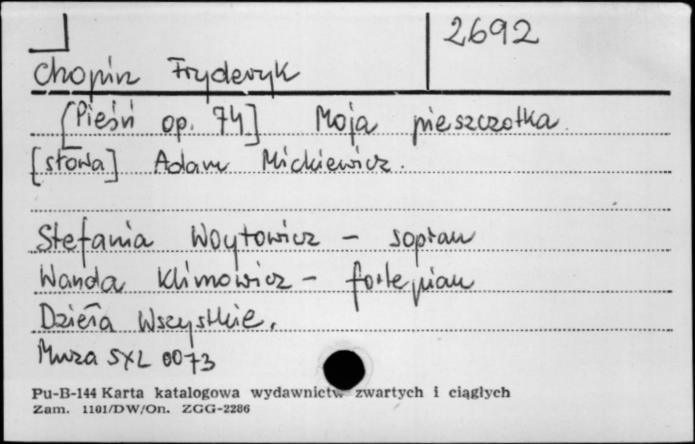 2692
Chopin Fryderyk
[Pieśń op. 74] Moja pieszczotka
[słowa] Adam Mickiewicz.
Stefania Woytowicz - sopran
Wanda Klimowicz - fortepian
Dzieła Wszystkie.
Muza SXL 0073
Pu-B-144 Karta katalogowa wydawnictw zwartych i ciągłych
Zam. 1101/DW/On. ZGG-2286